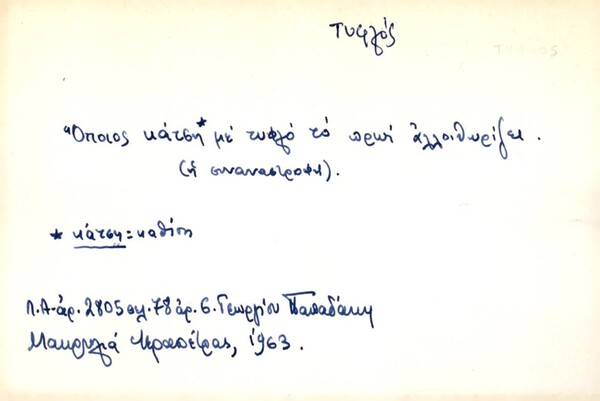 Τυφλός
Ὅποιος κάτση* μέ τυφλό τό πρωί ἀλλοιθωρίζει.
(ἡ συναναστροφή).
* κάτση = καθίση
Λ.Α-ἀρ. 2805 σελ. 78 ἀρ. 6. Γεωργίου Παπαδάκη
Μακρυλιά Ἱεραπέτρας, 1963.